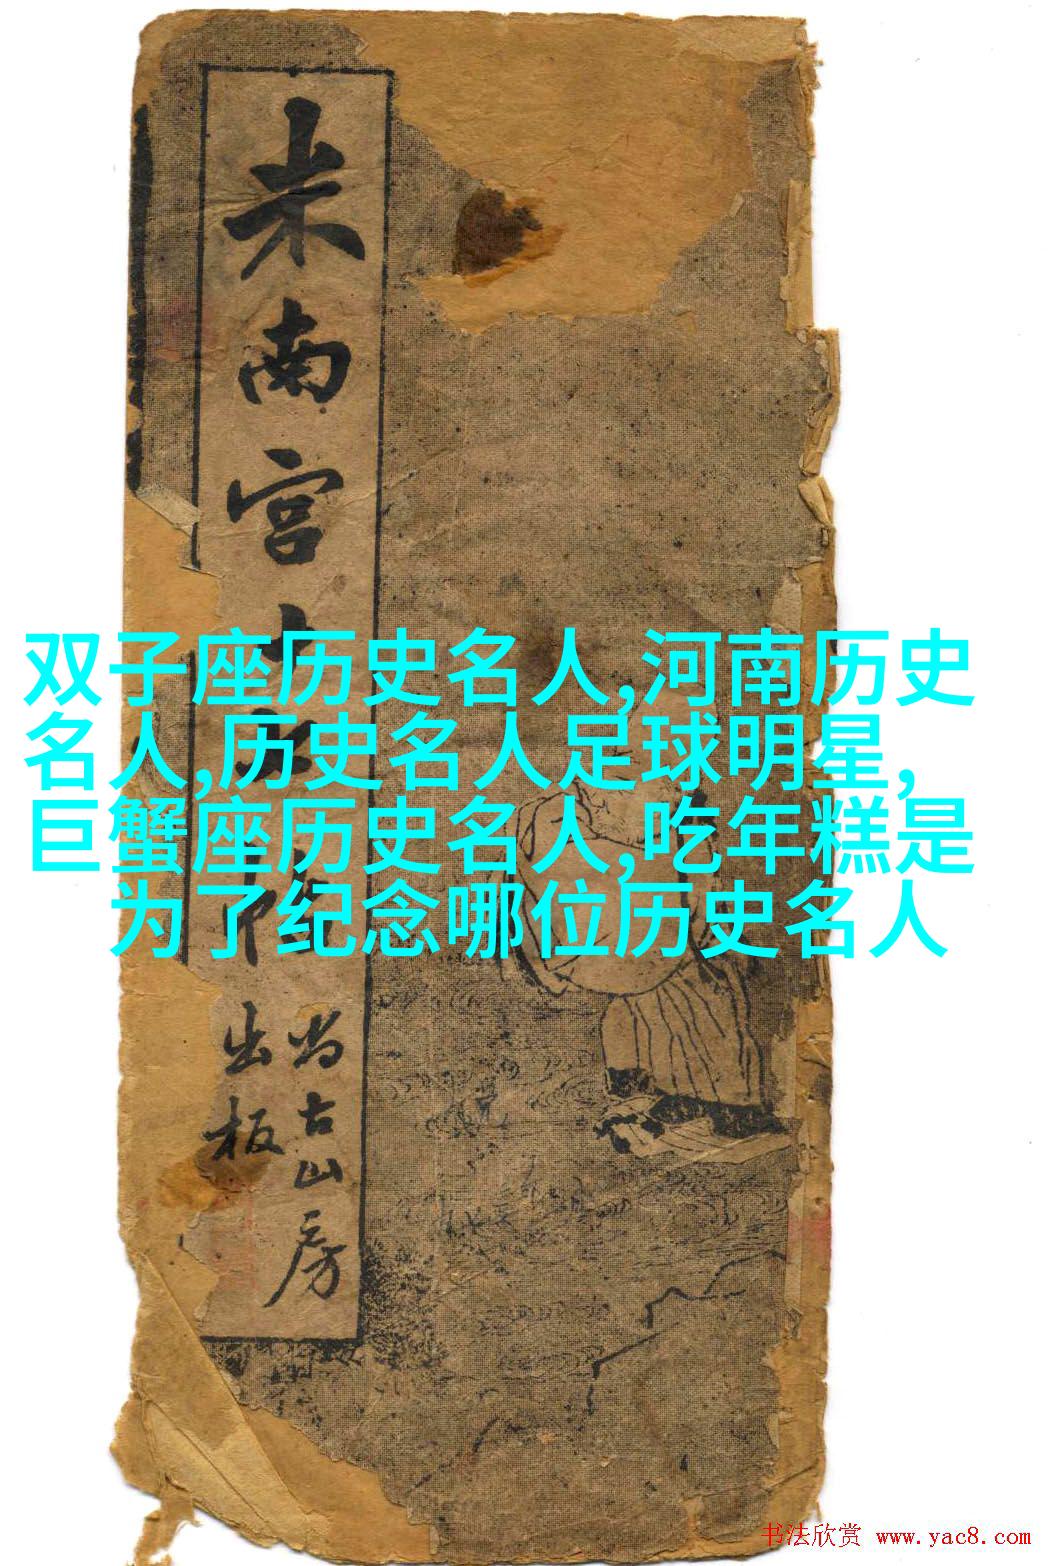 双子座历史名人,河南历史
名人,历史名人足球明星,
巨蟹座历史名人,吃年糕是
为了纪念哪位历史名人
米南宫十
尚古山房
出板
书法欣赏 www.yac8.com